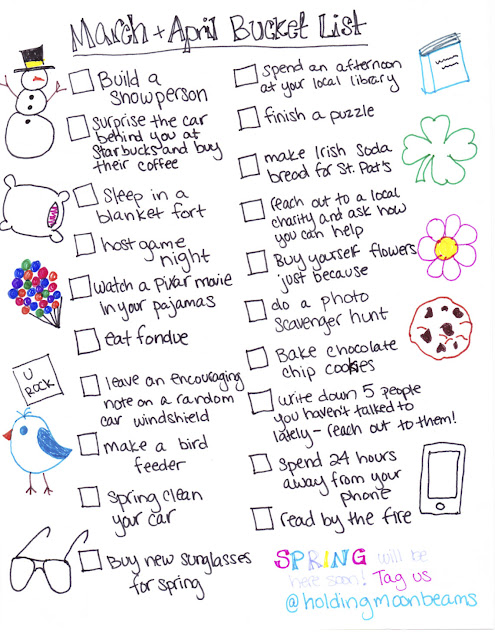 March + April Bucket List
Build a
snowperson
surprise the car
behind you at
Starbucks and buy
their coffee
sleep in a
blanket fort
host game
night
watch a pixar movie
in your pajamas
eat fondue
U
ROCK
leave an encouraging
note on a random
car windshield
make a bird
feeder
spring clean
your car
Buy new sunglasses
for spring
spend an afternoon
at your local library
finish a puzzle
make Irish Soda
bread for St. Pat's
reach out to a local
charity and ask how
you can help
Buy yourself flowers
just because
do a photo
scavenger hunt
Bake chocolate
chip cookies
write down 5 people
you haven't talked to
lately - reach out to them!
Spend 24 hours
away from your
phone
read by the fire
SPRING will be
here soon! Tag us
@holdingmoonbeams